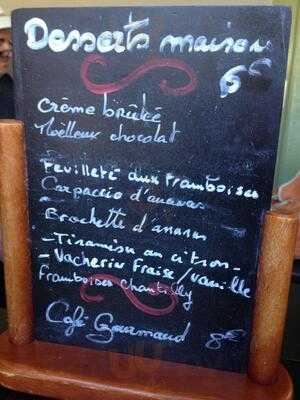 Desserts maison
6€
Crème brûlée
Moëlleux chocolat
Feuilleté aux Framboises
Carpaccio d'ananas
Brochette d'ananas
- Tiramisu au citron -
- Vacherin Fraise/vanille
Framboises chantilly
Café Gourmand 8€